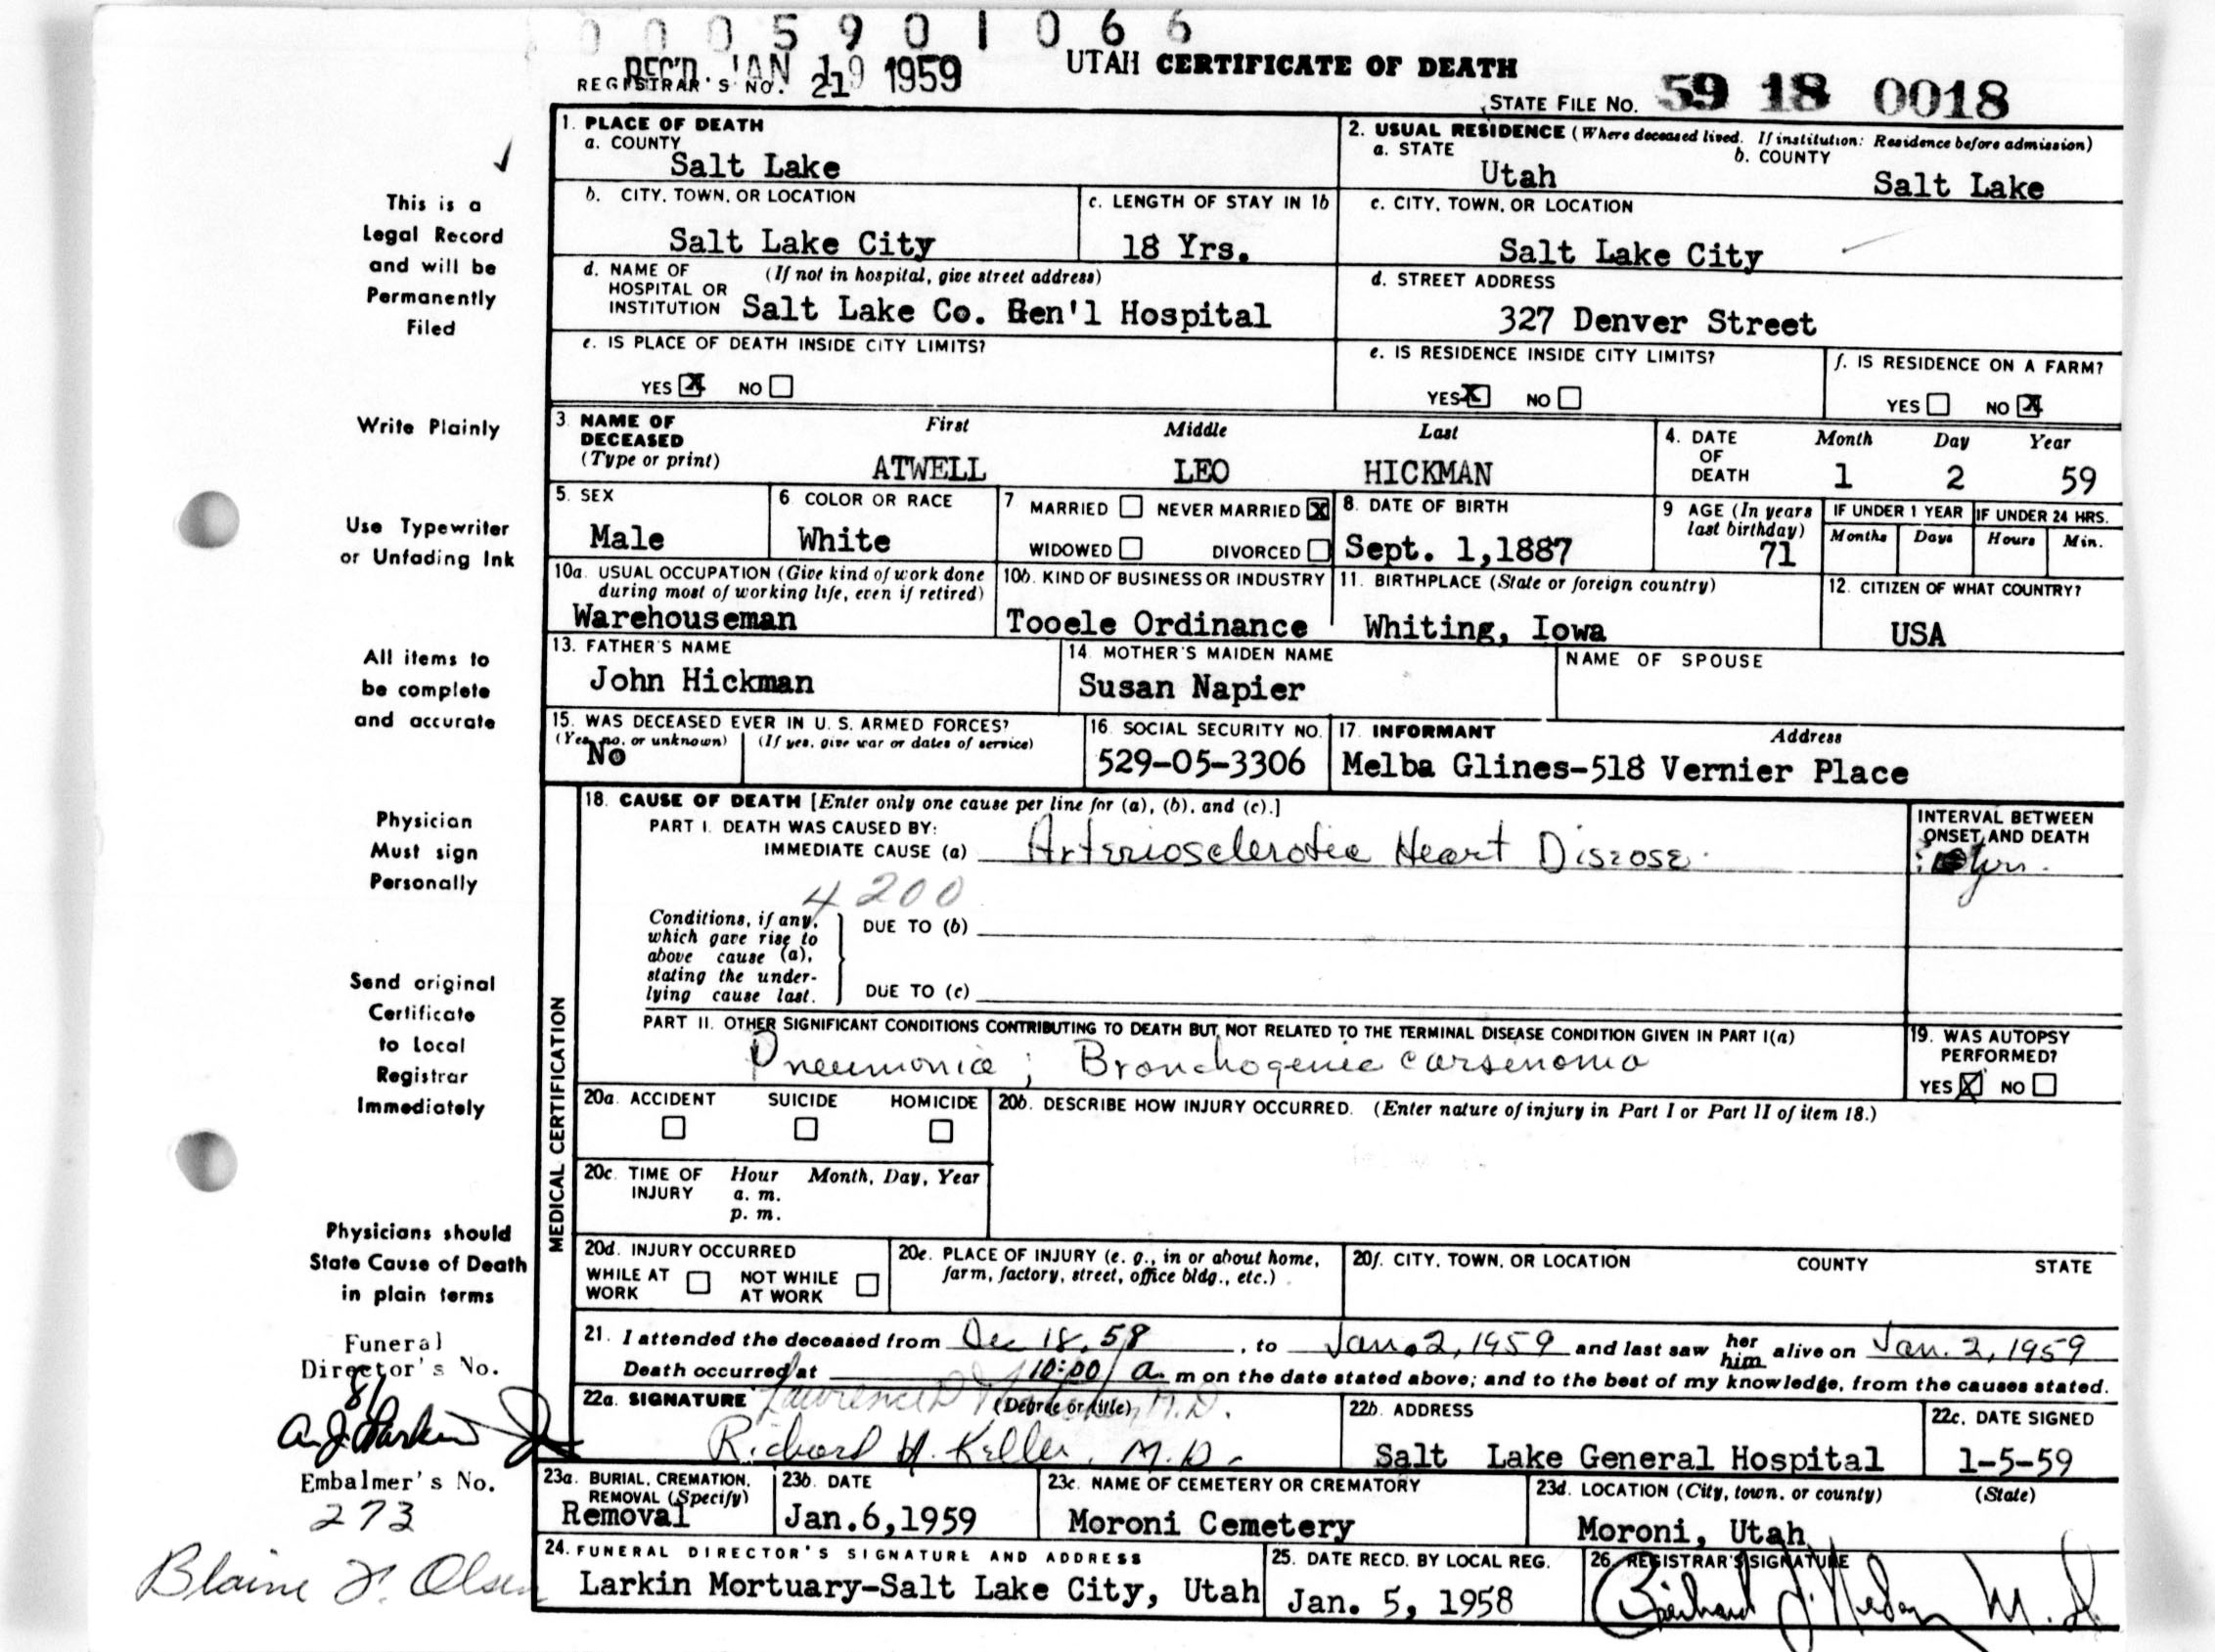 0 0 0 5 9 0 1 0 6 6
REC'D. JAN 1959
REGISTRAR'S NO. 21
UTAH CERTIFICATE OF DEATH
STATE FILE NO. 59 18 0018
This is a
Legal Record
and will be
Permanently
Filed
Write Plainly
Use Typewriter
or Unfading Ink
All items to
be complete
and accurate
Physician
Must sign
Personally
Send original
Certificate
to Local
Registrar
Immediately
Physicians should
State Cause of Death
in plain terms
Funeral
Director's No.
81
Embalmer's No.
273
Blaine Olsen
1. PLACE OF DEATH
a. COUNTY
Salt Lake
b. CITY, TOWN, OR LOCATION
Salt Lake City
c. LENGTH OF STAY IN 1b
18 Yrs.
d. NAME OF HOSPITAL OR INSTITUTION (If not in hospital, give street address)
Salt Lake Co. Gen'l Hospital
e. IS PLACE OF DEATH INSIDE CITY LIMITS?
YES X NO
2. USUAL RESIDENCE (Where deceased lived. If institution: Residence before admission)
a. STATE
Utah
b. COUNTY
Salt Lake
c. CITY, TOWN, OR LOCATION
Salt Lake City
d. STREET ADDRESS
327 Denver Street
e. IS RESIDENCE INSIDE CITY LIMITS?
YES X NO
f. IS RESIDENCE ON A FARM?
YES NO X
3. NAME OF DECEASED (Type or print)
First Middle Last
ATWELL LEO HICKMAN
4. DATE OF DEATH
Month Day Year
1 2 59
5. SEX
Male
6 COLOR OR RACE
White
7 MARRIED NEVER MARRIED X
WIDOWED DIVORCED
8. DATE OF BIRTH
Sept. 1,1887
9 AGE (In years last birthday)
71
IF UNDER 1 YEAR
Months Days
IF UNDER 24 HRS.
Hours Min.
10a. USUAL OCCUPATION (Give kind of work done
during most of working life, even if retired)
Warehouseman
10b. KIND OF BUSINESS OR INDUSTRY
Tooele Ordinance
11. BIRTHPLACE (State or foreign country)
Whiting, Iowa
12. CITIZEN OF WHAT COUNTRY?
USA
13. FATHER'S NAME
John Hickman
14. MOTHER'S MAIDEN NAME
Susan Napier
NAME OF SPOUSE
15. WAS DECEASED EVER IN U. S. ARMED FORCES?
(Yes, no, or unknown) (If yes, give war or dates of service)
No
16. SOCIAL SECURITY NO.
529-05-3306
17. INFORMANT Address
Melba Glines-518 Vernier Place
MEDICAL CERTIFICATION
18. CAUSE OF DEATH [Enter only one cause per line for (a), (b), and (c).]
PART I. DEATH WAS CAUSED BY:
IMMEDIATE CAUSE (a) Arteriosclerotic Heart Disease.
INTERVAL BETWEEN
ONSET AND DEATH
yrs.
4200
Conditions, if any,
which gave rise to
above cause (a),
stating the under-
lying cause last.
DUE TO (b)
DUE TO (c)
PART II. OTHER SIGNIFICANT CONDITIONS CONTRIBUTING TO DEATH BUT NOT RELATED TO THE TERMINAL DISEASE CONDITION GIVEN IN PART I(a)
Pneumonia; Bronchogenic carsenoma
19. WAS AUTOPSY
PERFORMED?
YES X NO
20a. ACCIDENT SUICIDE HOMICIDE
20b. DESCRIBE HOW INJURY OCCURRED. (Enter nature of injury in Part I or Part II of item 18.)
20c. TIME OF INJURY
Hour Month, Day, Year
a. m.
p. m.
20d. INJURY OCCURRED
WHILE AT WORK NOT WHILE AT WORK
20e. PLACE OF INJURY (e. g., in or about home,
farm, factory, street, office bldg., etc.)
20f. CITY, TOWN, OR LOCATION COUNTY STATE
21. I attended the deceased from Dec 18, 58, to Jan. 2, 1959 and last saw her him alive on Jan. 2, 1959
Death occurred at 10:00 a. m on the date stated above; and to the best of my knowledge, from the causes stated.
22a. SIGNATURE (Degree or title)
Lawrence M.D.
Richard H. Keller, M.D.
22b. ADDRESS
Salt Lake General Hospital
22c. DATE SIGNED
1-5-59
23a. BURIAL, CREMATION,
REMOVAL (Specify)
Removal
23b. DATE
Jan.6,1959
23c. NAME OF CEMETERY OR CREMATORY
Moroni Cemetery
23d. LOCATION (City, town, or county) (State)
Moroni, Utah
24. FUNERAL DIRECTOR'S SIGNATURE AND ADDRESS
Larkin Mortuary-Salt Lake City, Utah
25. DATE RECD. BY LOCAL REG.
Jan. 5, 1958
26. REGISTRAR'S SIGNATURE